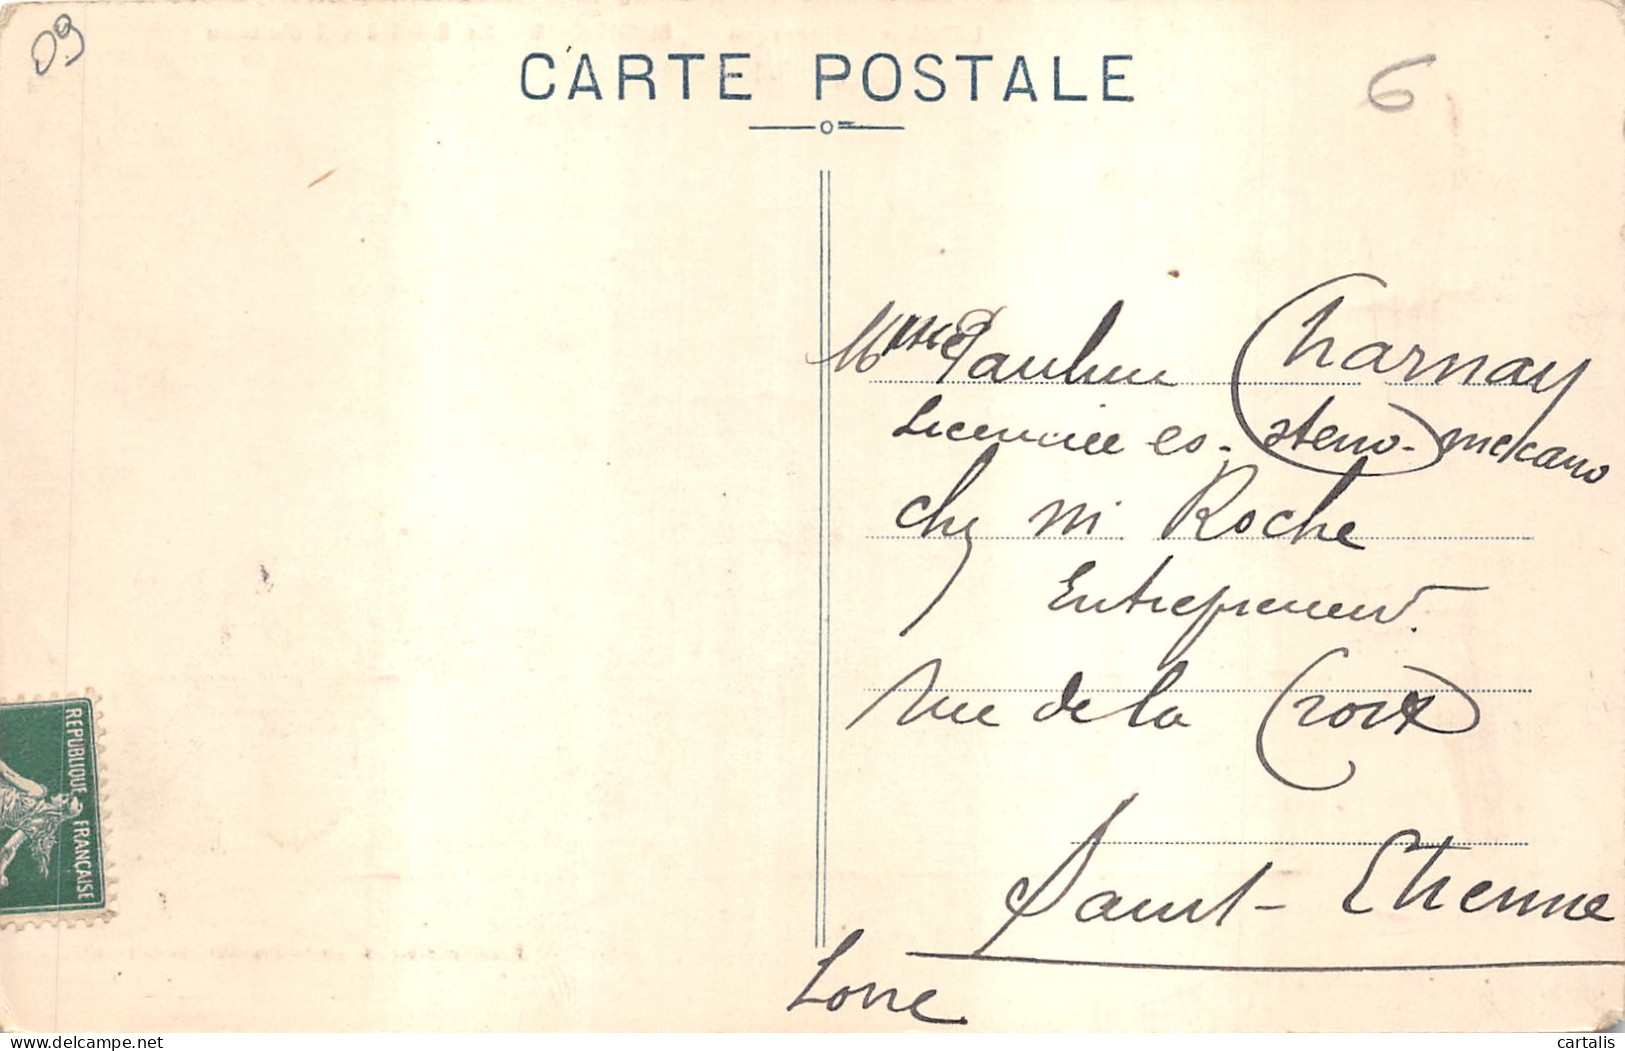 09
CARTE POSTALE
6
Mme Pauline Charnay
Licenciée es-steno-mekano
chz Mr Roche
Entrepreneur
rue de la Croix
Saint-Etienne
Loire
REPUBLIQUE FRANÇAISE
cartalis